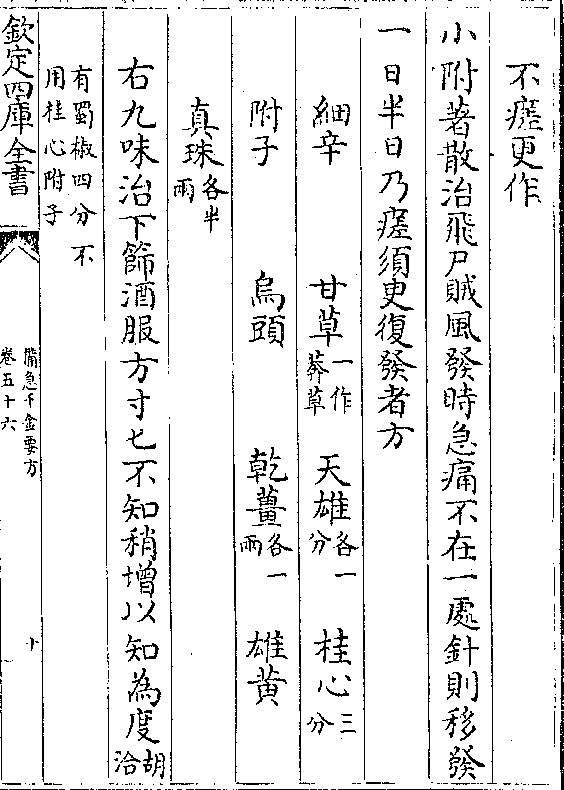 不瘥更作
小附著散治飛尸賊風發時急痛不在一處針則移發
一日半日乃瘥須臾復發者方
細辛 甘草一作莽草 天雄各一分 桂心三分
附子 烏頭 乾薑各一兩 雄黄
真珠各半兩
右九味治下篩酒服方寸匕不知稍增以知為度胡洽
有蜀椒四分不用桂心附子
欽定四庫全書
備急千金要方
卷五十六
十